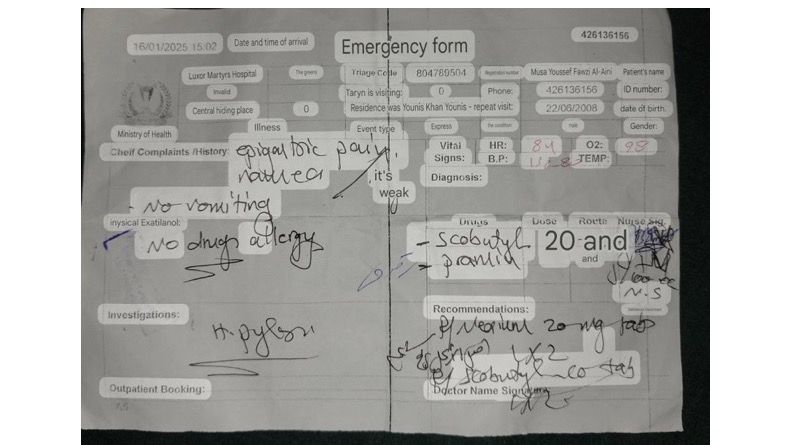 426136156
16/01/2025 15:02 Date and time of arrival Emergency form
Luxor Martyrs Hospital The greens Triage Code 804789504 Registration number Musa Youssef Fawzi Al-Aini Patient's name
Invalid Taryn is visiting: 0 Phone: 426136156 ID number:
Central hiding place 0 Residence was Younis Khan Younis - repeat visit: 22/06/2008 date of birth.
Ministry of Health Illness Event type Express the condition male Gender:
Cheif Complaints /History: epigastric pain, Vital HR: 84 O2: 98
nausea , it's weak Signs: B.P: TEMP:
Diagnosis:
- No vomiting
inysical Exatilanol: Drugs Dose Route Nurse Sig.
No drugs allergy - Scobutyl 20 and
- pramin and
N.S
Investigations: Recommendations:
H. pylori Nexium 20 mg tab
1x2
scobutyl co tab
Outpatient Booking: Doctor Name Signatura